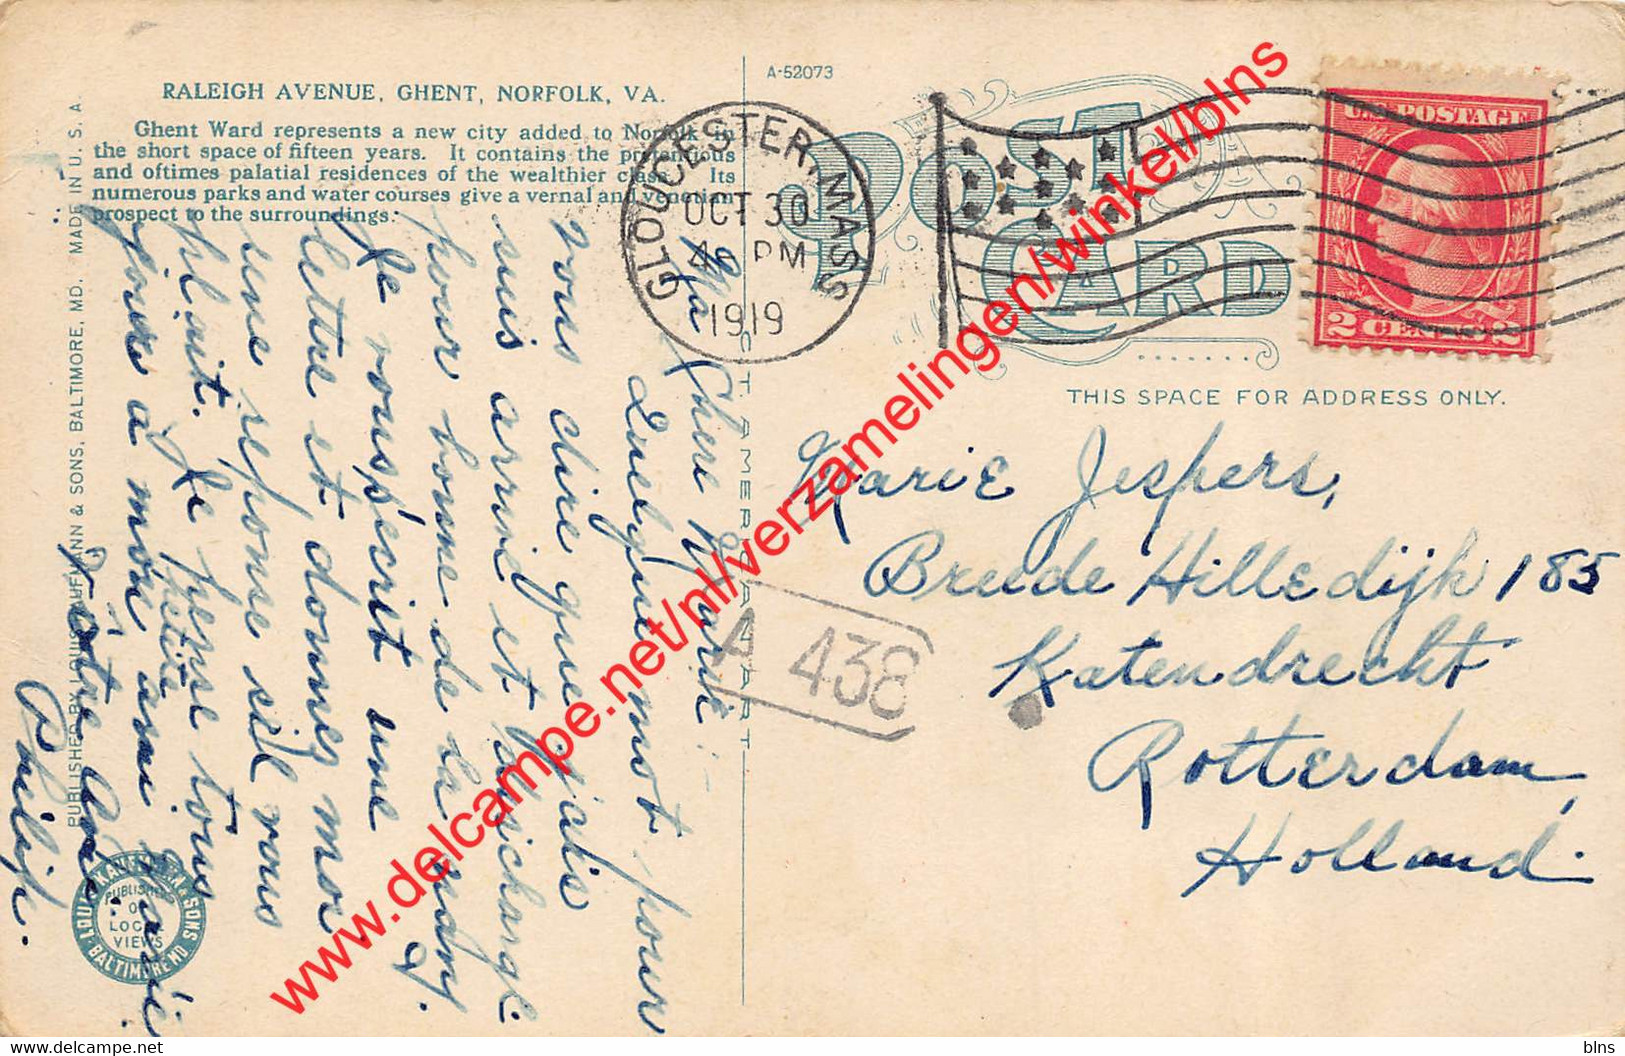 RALEIGH AVENUE, GHENT, NORFOLK, VA.
Ghent Ward represents a new city added to Norfolk in
the short space of fifteen years. It contains the pretentious
and oftimes palatial residences of the wealthier class. Its
numerous parks and water courses give a vernal and venetian
prospect to the surroundings.
A-52073
POST CARD
GLOUCESTER, MASS
OCT 30
4 PM
1919
U.S. POSTAGE
2 CENTS 2
THIS SPACE FOR ADDRESS ONLY.
Marie Jespers,
Breede Hilledijk 185
Katendrecht
Rotterdam,
Holland.
A 438
Ma Chere Marie :-
Quelque mot pour
vous dire que jalis
suis arrivé et
pour bonne de la
Je vous s'ecrit une
lettre et donnes moi
une reponse s'il vous
plait. Je pense tous
jours a mon ami
petite
Marie
Philip.
PUBLISHED BY LOUIS KAUFMANN & SONS, BALTIMORE, MD. MADE IN U. S. A.
LOUIS KAUFMANN & SONS
BALTIMORE MD
PUBLISHERS
OF
LOCAL
VIEWS
AMERICAN ART
www.delcampe.net/nl/verzamelingen/winkel/blns
www.delcampe.net
blns